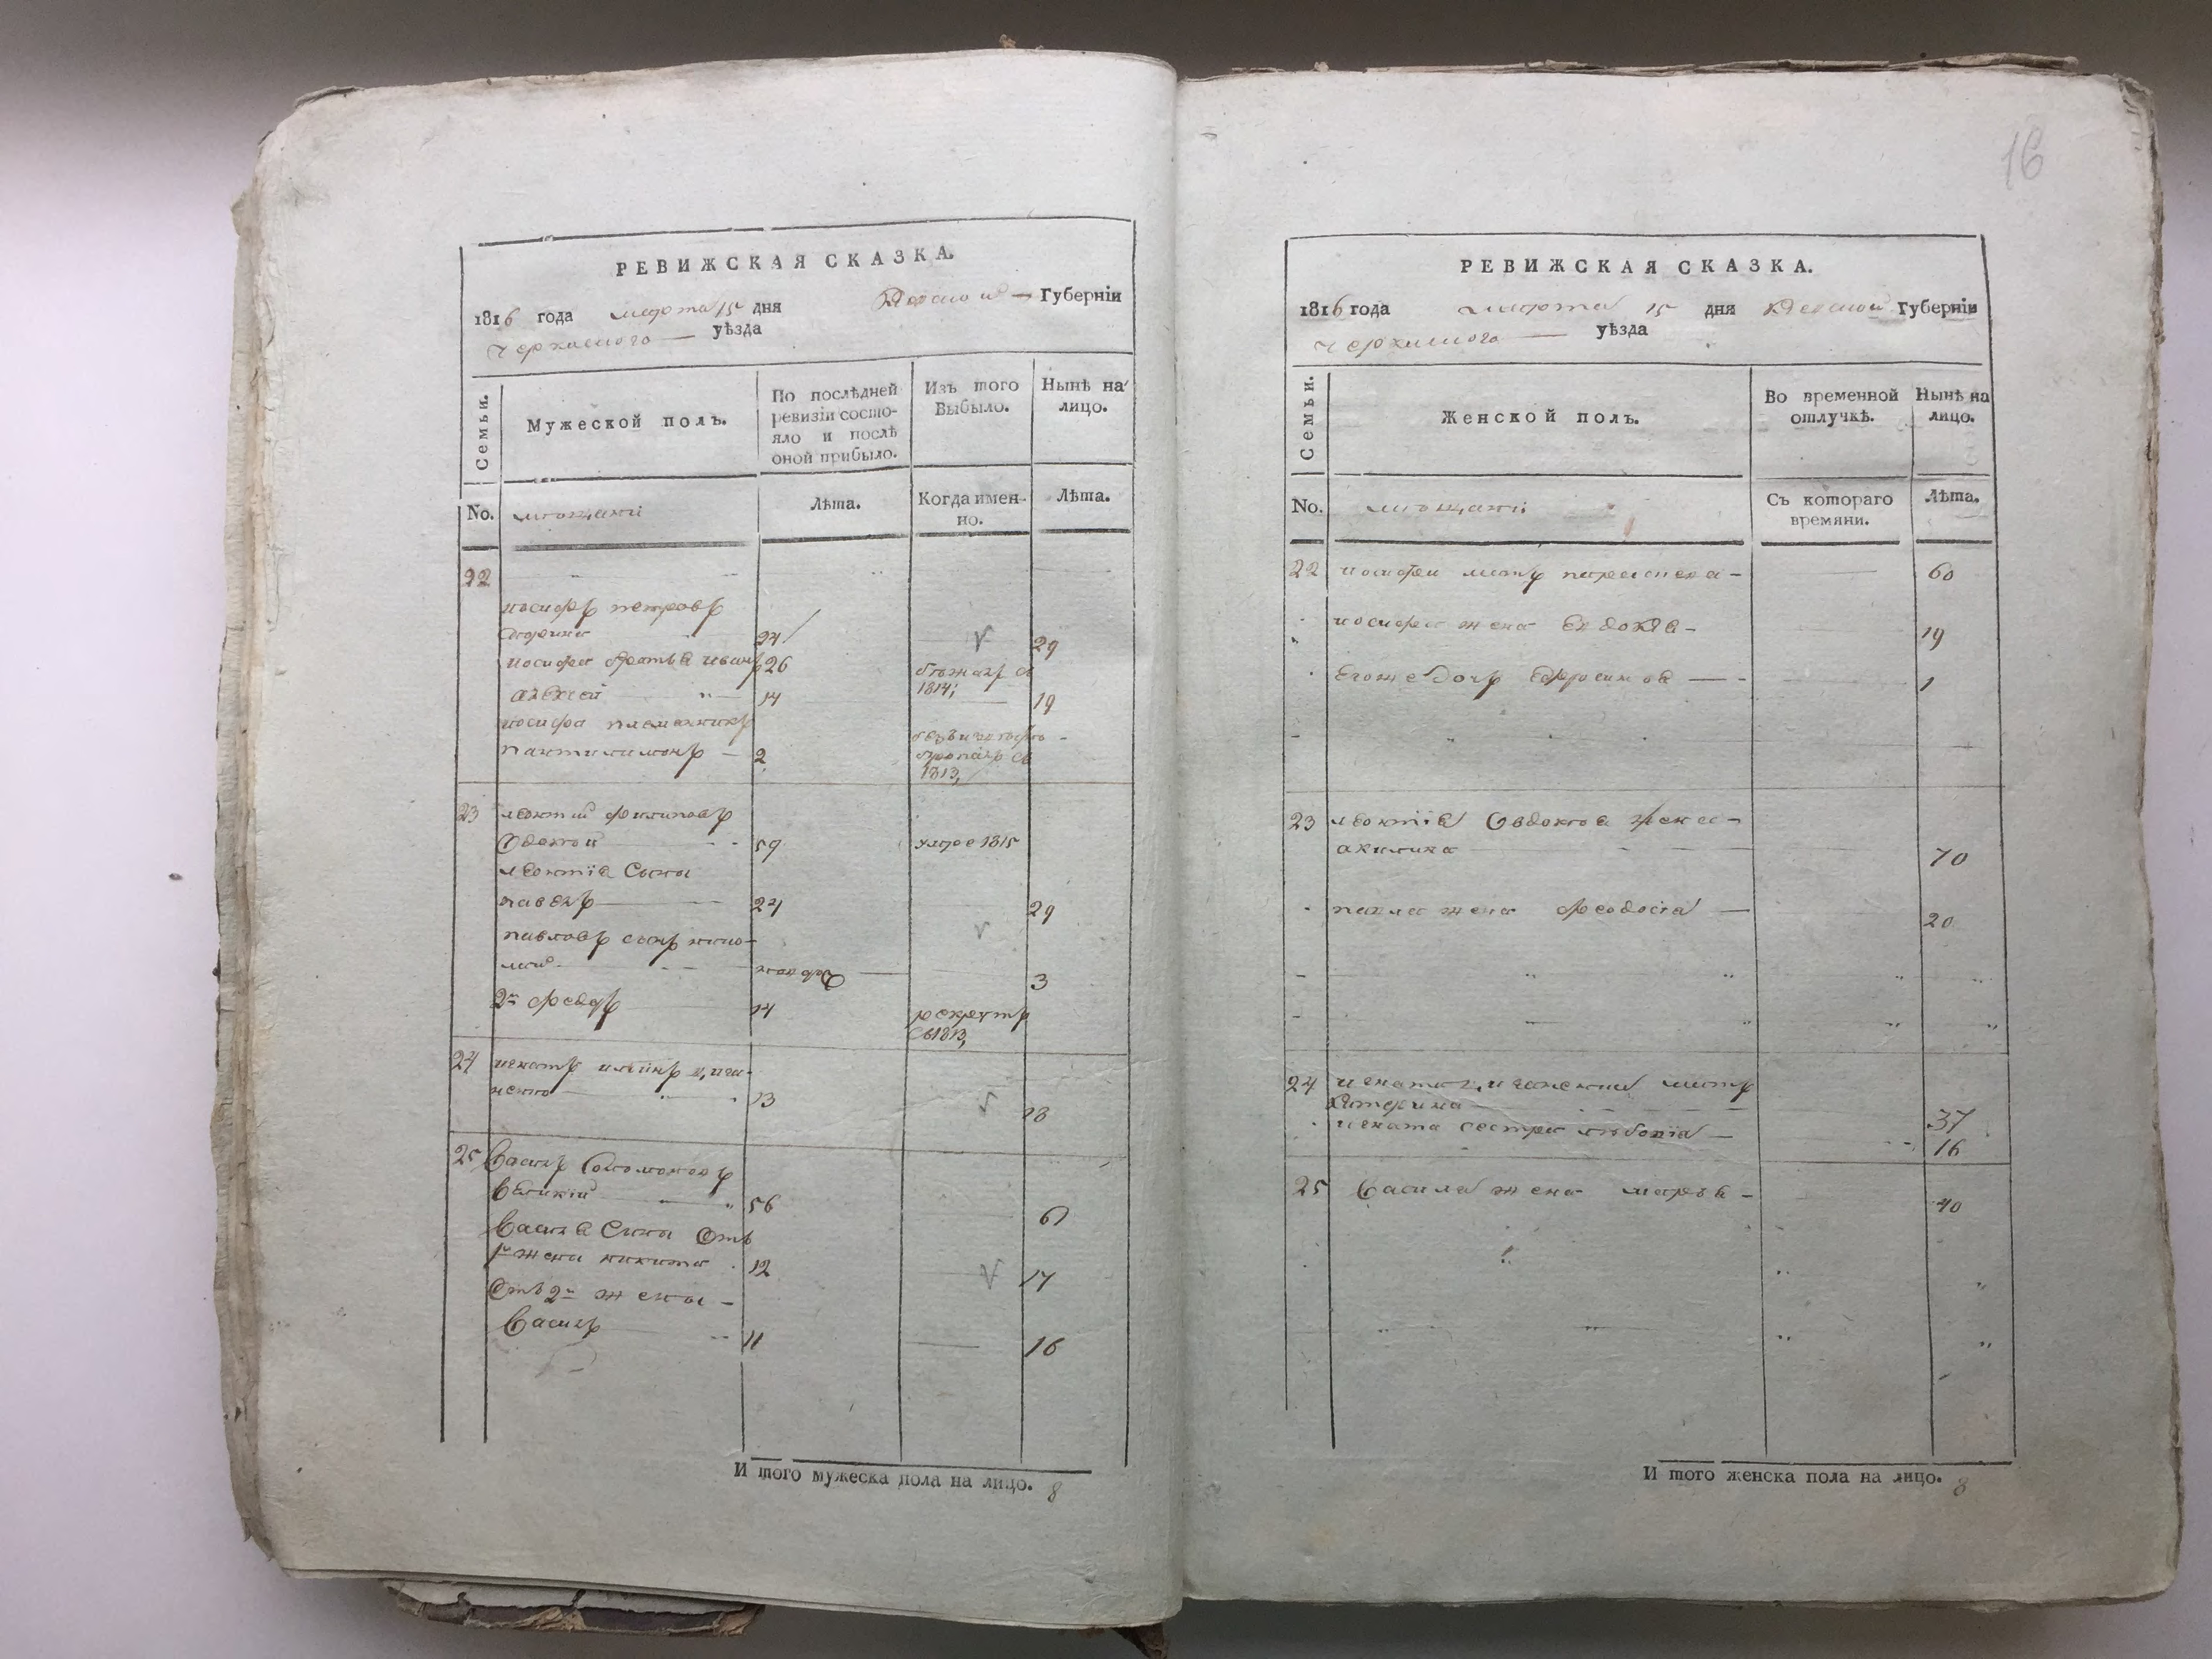 РЕВИЖСКАЯ СКАЗКА.
1816 года марта 15 дня Киевской Губернїи
Черкаского уѣзда
Семьи.
Мужеской полъ.
По послѣдней ревизїи состо-
яло и послѣ
оной прибыло.
Изъ того
Выбыло.
Нынѣ на
лицо.
No. мещани
Лѣта.
Когда имен-
но.
Лѣта.
22
иосифъ петровъ
24 29
иосифа братья иванъ 26 бежалъ въ
1814;
алексей 14 19
иосифа племянникъ
пантилимонъ 2 безъизвестно
пропалъ въ
1813,
23 леонтий филиповъ
59 умре 1815
леонтїя сыны
павелъ 24 29
павловъ сынъ
3
2й федоръ 14 рекрутъ
въ 1813,
24 игнатъ
13 18
25 Василь Соломоновъ
Великїй 56 61
Василя Сыны Отъ
1й жены никита 12 17
Отъ 2й жены
Василь 11 16
И того мужеска пола на лицо. 8
16
РЕВИЖСКАЯ СКАЗКА.
1816 года марта 15 дня Киевской Губернїи
Черкаского уѣзда
Семьи.
Женской полъ.
Во временной
отлучкѣ.
Нынѣ на
лицо.
No. мещани:
Съ котораго
времяни.
Лѣта.
22 иосифа мать параскева 60
иосифа жена Евдокѣя 19
Егоже дочь Ефросиния 1
23 леонтїя жена
акилина 70
павла жена феодосїя 20
24 игната мать
Катерина 37
игната сестра 16
25 Василя жена марья 40
И того женска пола на лицо. 8